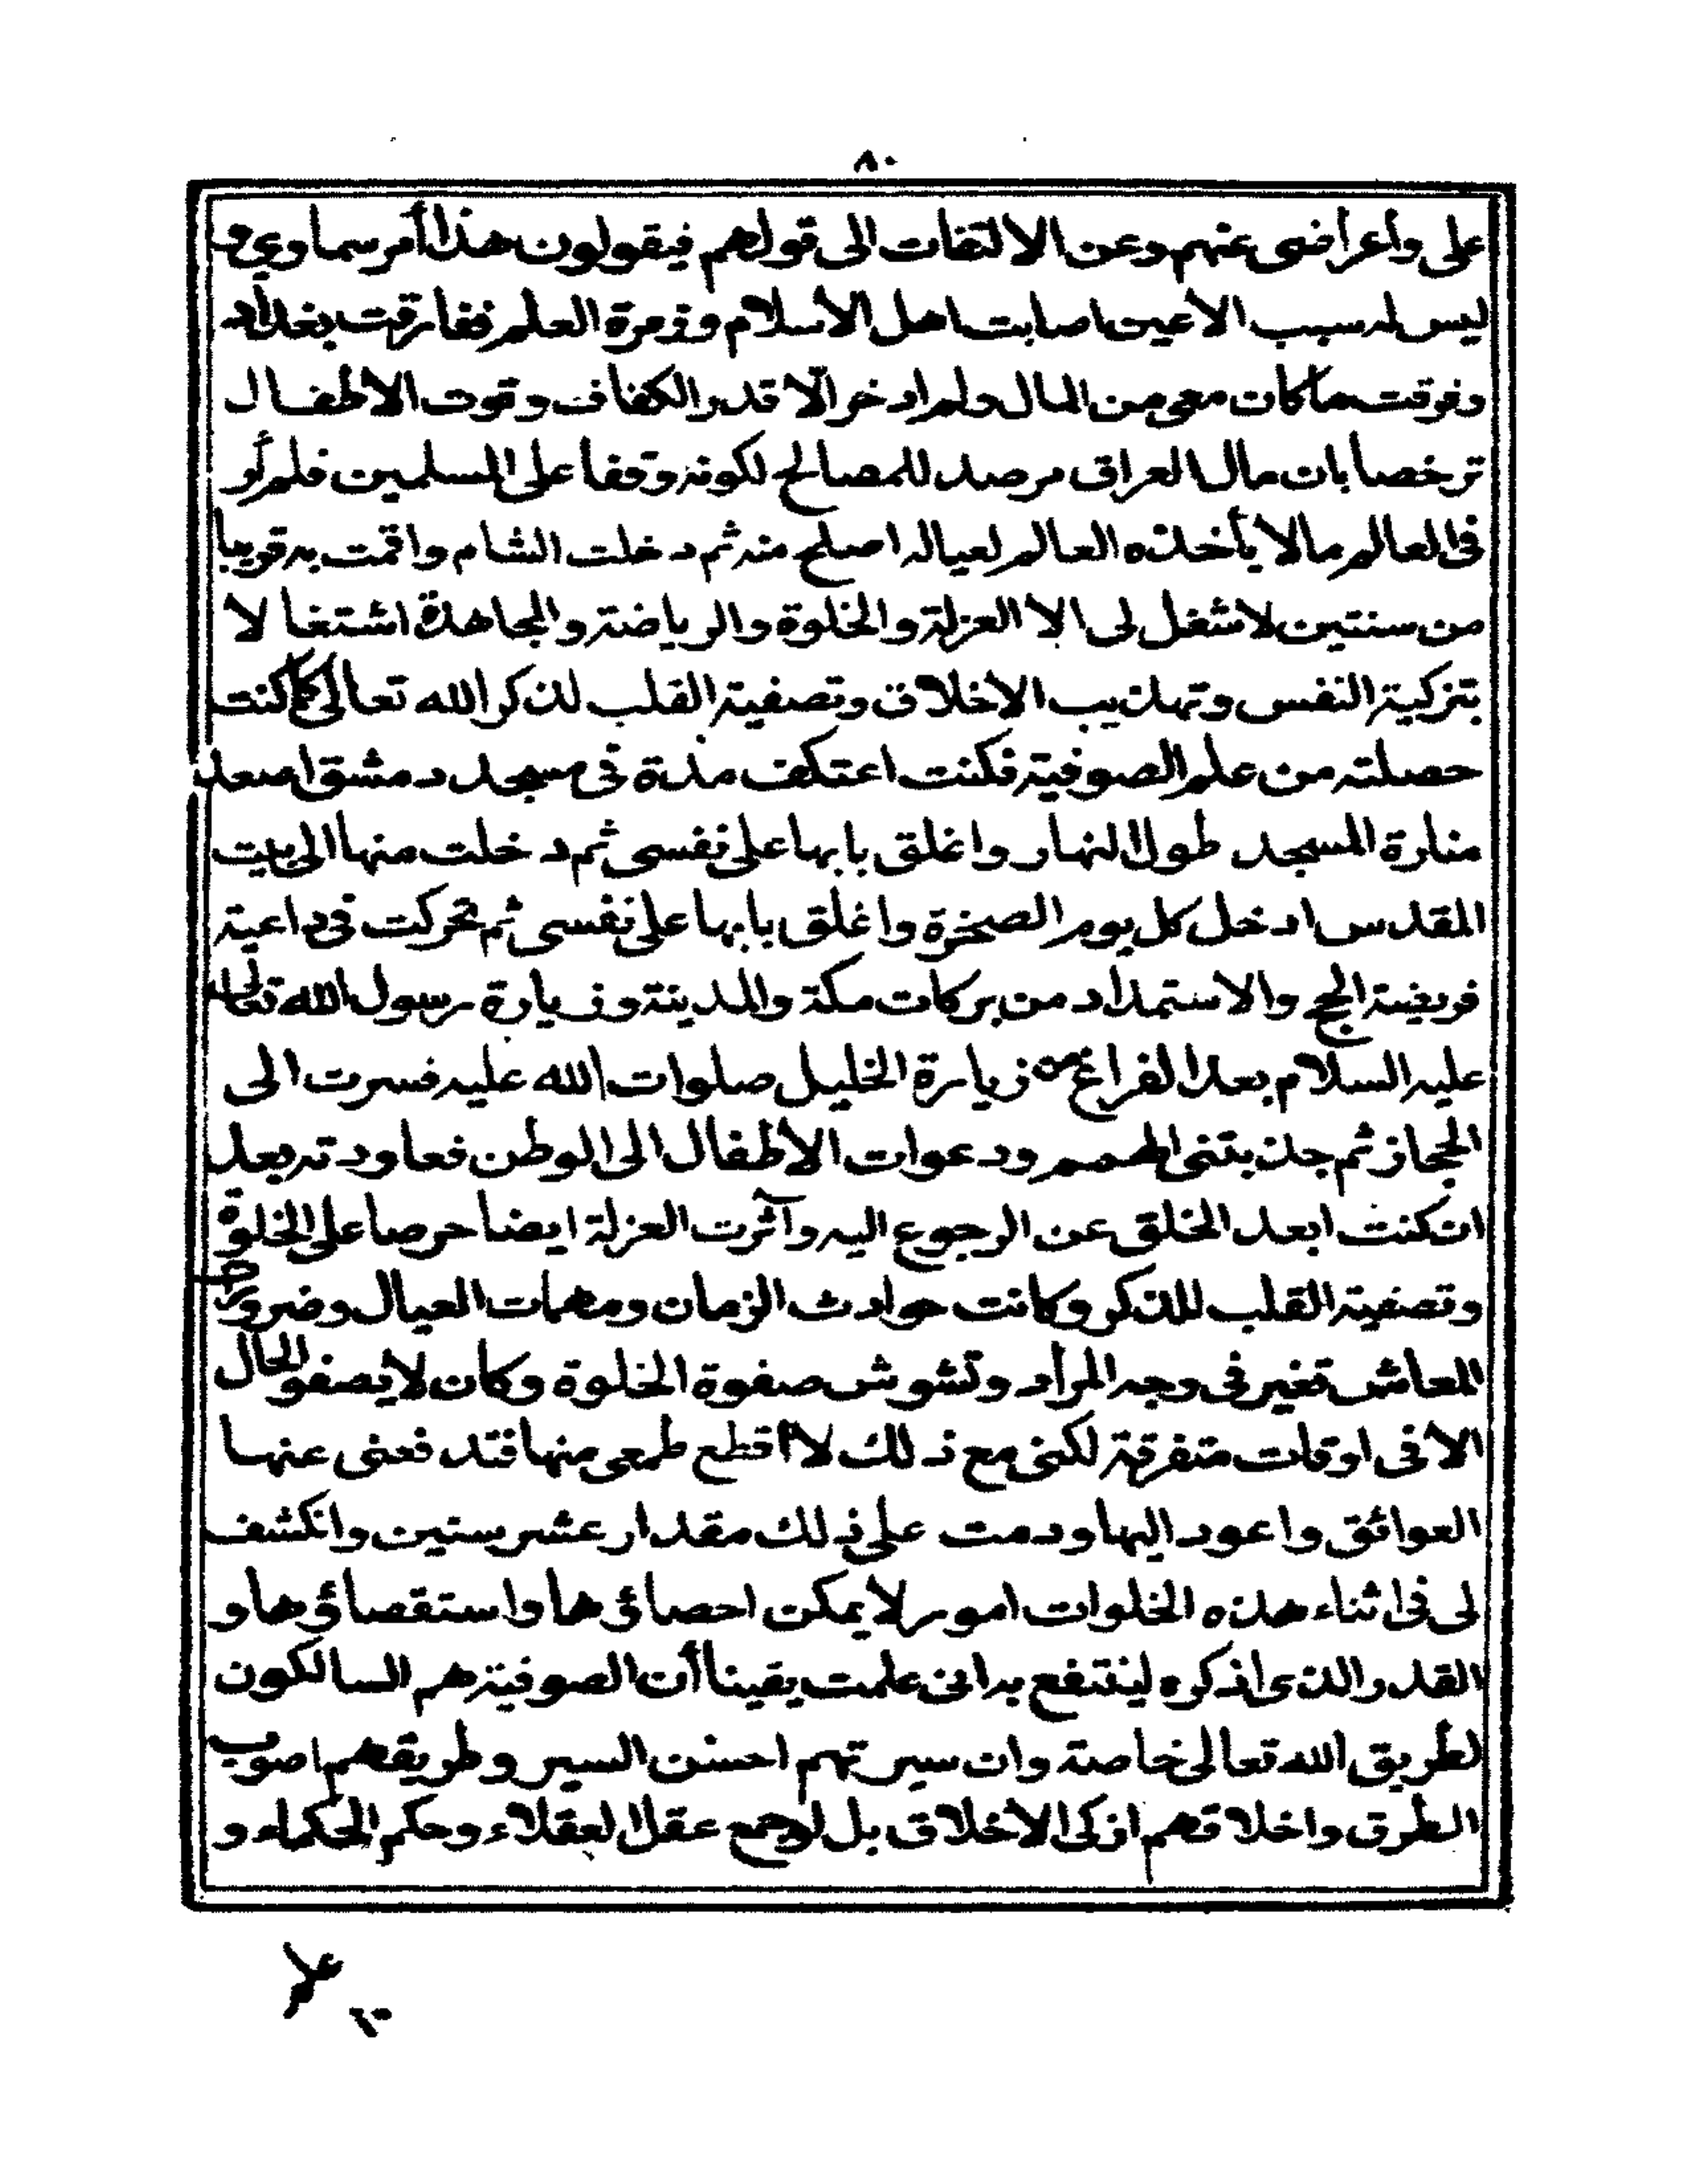 ٨٠
على وأعراضى عنهم وعن الالتفات الى قولهم فيقولون هذا أمر سماوي و
ليس له سبب الا عين اصابت اهل الأسلام وزمرة العلم ففارقت بغداد
وفرقت ما كان معى من المال ولم ادخر الّا قدر الكفاف وقوت الاطفال
ترخصا بان مال العراق مرصد للمصالح لكونه وقفا على المسلمين فلم أر
فى العالم مالا يأخذه العالم لعياله اصلح منه ثم دخلت الشام واقمت به قريبا
من سنتين لا شغل لى الا العزلة والخلوة والرياضة والمجاهدة اشتغالا
بتزكية النفس وتهذيب الاخلاق وتصفية القلب لذكر الله تعالى كما كنت
حصلته من علم الصوفية فكنت اعتكف مدة فى مسجد دمشق اصعد
منارة المسجد طول النهار واغلق بابها على نفسى ثم دخلت منها الى بيت
المقدس ادخل كل يوم الصخرة واغلق بابها على نفسى ثم تحركت فى داعية
فريضة الحج والاستمداد من بركات مكة والمدينة وزيارة رسول الله تعالى
عليه السلام بعد الفراغ من زيارة الخليل صلوات الله عليه فسرت الى
الحجاز ثم جذبتنى الهمم ودعوات الأطفال الى الوطن فعاودته بعد
ان كنت ابعد الخلق عن الرجوع اليه وآثرت العزلة ايضا حرصا على الخلوة
وتصفية القلب للذكر وكانت حوادث الزمان ومهمات العيال وضرورة
المعاش تغير فى وجه المراد وتشوش صفوة الخلوة وكان لا يصفو الحال
الا فى اوقات متفرقة لكنى مع ذلك لا أقطع طمعى منها فتدفعنى عنها
العوائق واعود اليها ودمت على ذلك مقدار عشر سنين وانكشف
لى فى اثناء هذه الخلوات امور لا يمكن احصائها واستقصائها و
القدر الذى اذكره لينتفع به انى علمت يقينا أن الصوفية هم السالكون
لطريق الله تعالى خاصة وان سيرتهم احسن السير وطريقهم اصوب
الطرق واخلاقهم ازكى الاخلاق بل لو جمع عقل العقلاء وحكم الحكماء و
علم